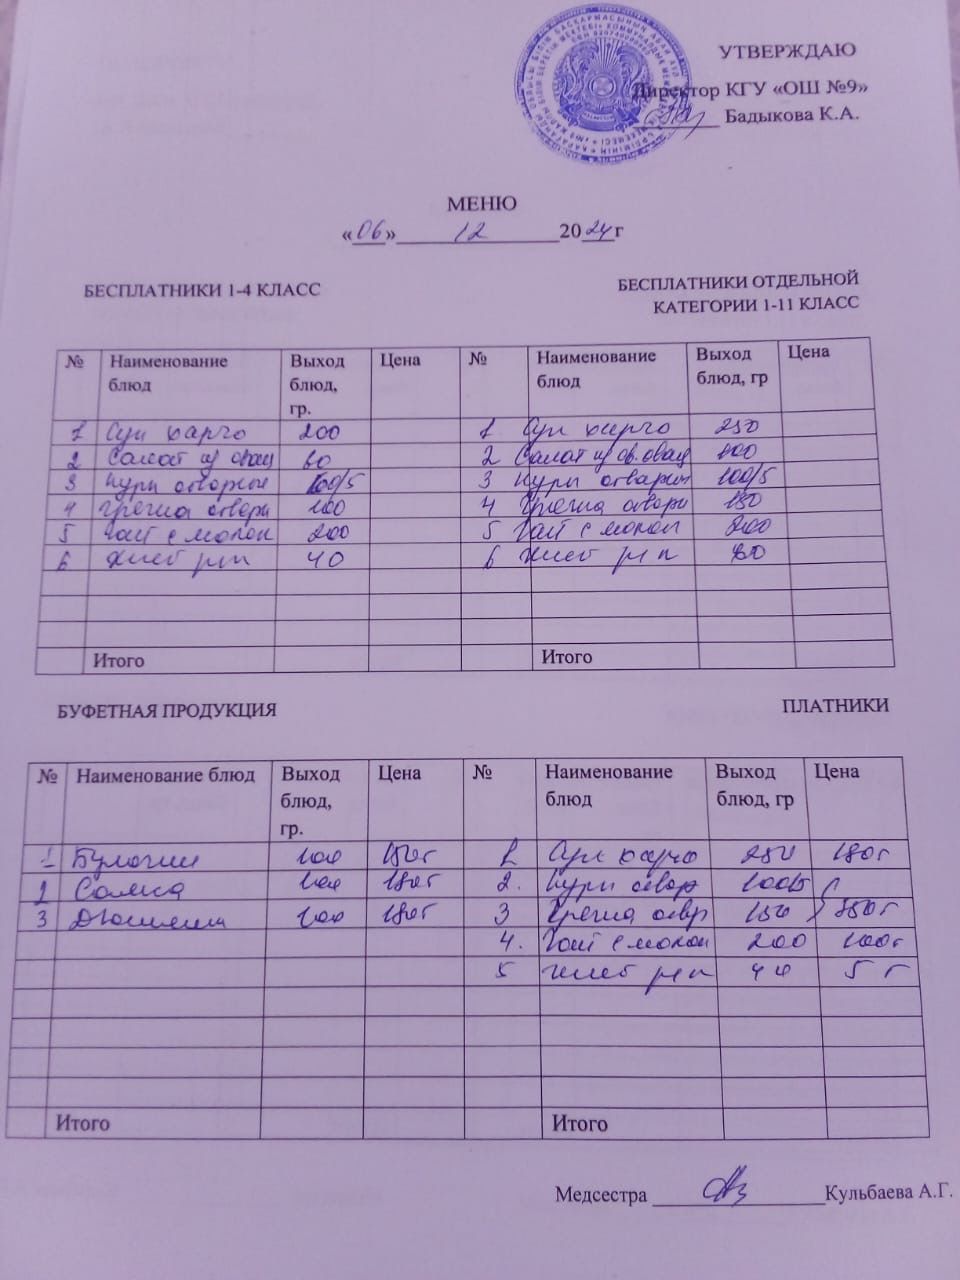 УТВЕРЖДАЮ
Директор КГУ «ОШ №9»
Бадыкова К.А.
МЕНЮ
«06» 12 2024г
БЕСПЛАТНИКИ 1-4 КЛАСС
БЕСПЛАТНИКИ ОТДЕЛЬНОЙ
КАТЕГОРИИ 1-11 КЛАСС
№ Наименование блюд Выход блюд, гр. Цена № Наименование блюд Выход блюд, гр Цена
1 Суп харчо 200 1 Суп харчо 250
2 Салат из овощ 60 2 Салат из св.овощ 100
3 Куры отварные 100/5 3 Куры отварн 100/5
4 Гречка отварн 100 4 Гречка отварн 150
5 Чай с молок 200 5 Чай с молок 200
6 Хлеб рж п 40 6 Хлеб рж п 80
Итого Итого
БУФЕТНАЯ ПРОДУКЦИЯ
ПЛАТНИКИ
№ Наименование блюд Выход блюд, гр. Цена № Наименование блюд Выход блюд, гр Цена
1 Булочки 100 180т 1 Суп харчо 250 180т
2 Сомса 100 180т 2. Куры отвар 100/5
3 100 180т 3 Гречка отвр 150 350т
4. Чай с молок 200 100т
5 хлеб рж п 40 5 т
Итого Итого
Медсестра Кульбаева А.Г.